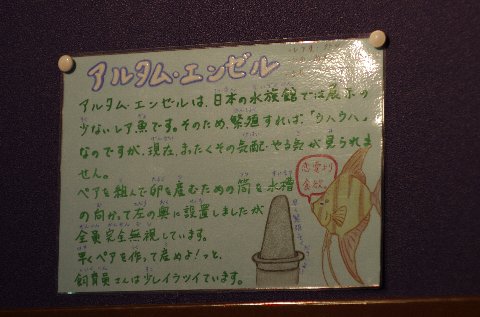 アルタム・エンゼル
アルタム・エンゼルは、日本の水族館では展示の
少ないレア魚です。そのため、繁殖すれば、「ウハウハ」
なのですが、現在、まったくその気配・やる気が見られま
せん。
ペアを組んで卵を産むための筒を水槽
の向かって左の奥に設置しましたが
全員完全無視しています。
早くペアを作って産めよ!っと、
飼育員さんは少しイラツイています。
恋愛より
食欲。